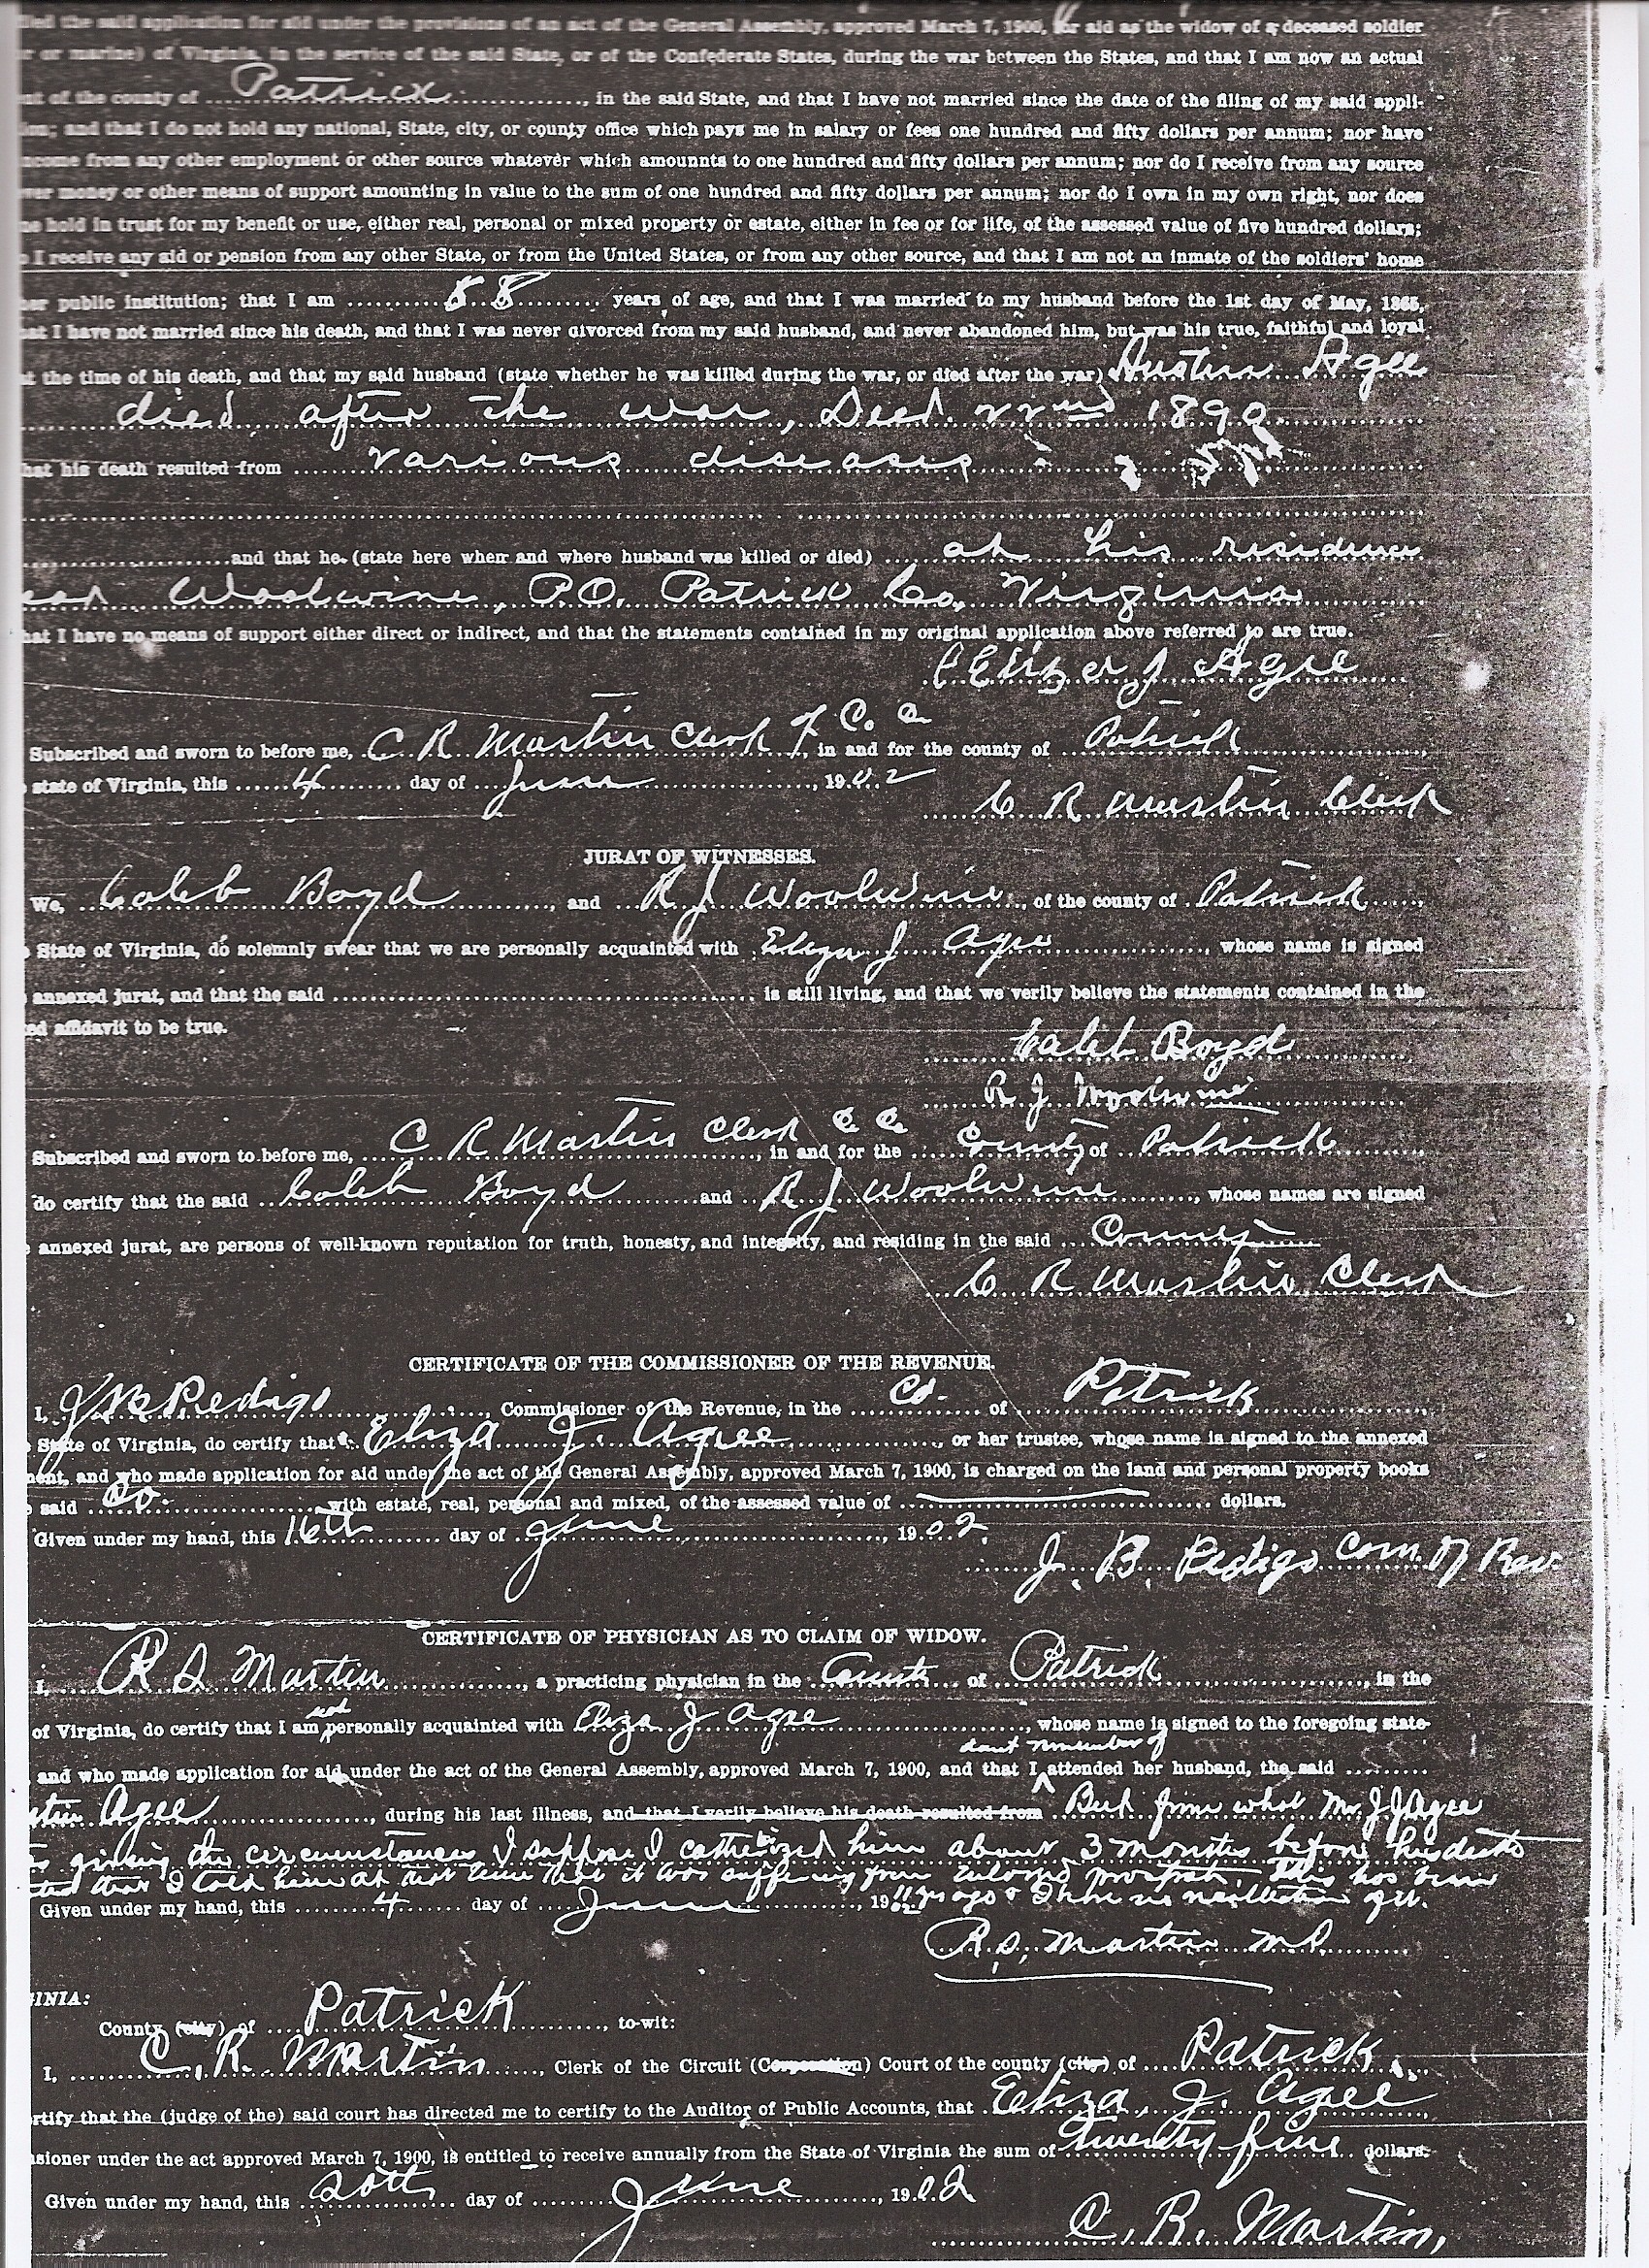 led the said application for aid under the provisions of an act of the General Assembly, approved March 7, 1900, for aid as the widow of a deceased soldier
r or marine) of Virginia, in the service of the said State, or of the Confederate States, during the war between the States, and that I am now an actual
nt of the county of Patrick, in the said State, and that I have not married since the date of the filing of my said appli-
on; and that I do not hold any national, State, city, or county office which pays me in salary or fees one hundred and fifty dollars per annum; nor have
ncome from any other employment or other source whatever which amounnts to one hundred and fifty dollars per annum; nor do I receive from any source
ver money or other means of support amounting in value to the sum of one hundred and fifty dollars per annum; nor do I own in my own right, nor does
ne hold in trust for my benefit or use, either real, personal or mixed property or estate, either in fee or for life, of the assessed value of five hundred dollars;
I receive any aid or pension from any other State, or from the United States, or from any other source, and that I am not an inmate of the soldiers' home
her public institution; that I am 58 years of age, and that I was married to my husband before the 1st day of May, 1865,
at I have not married since his death, and that I was never divorced from my said husband, and never abandoned him, but was his true, faithful and loyal
t the time of his death, and that my said husband (state whether he was killed during the war, or died after the war) Austin Agee
died after the war, Died 22nd 1890
hat his death resulted from various diseases
and that he (state here when and where husband was killed or died) at his residence
near Woolwine, P.O. Patrick Co, Virginia
hat I have no means of support either direct or indirect, and that the statements contained in my original application above referred to are true.
Eliza J Agee
Subscribed and sworn to before me, C R Martin Clerk of Co. C. in and for the county of Patrick,
state of Virginia, this 4 day of June, 1902
C R Martin Clerk
JURAT OF WITNESSES.
We, Caleb Boyd, and R J Woolwine, of the county of Patrick,
State of Virginia, do solemnly swear that we are personally acquainted with Eliza J Agee, whose name is signed
annexed jurat, and that the said is still living, and that we verily believe the statements contained in the
ed affidavit to be true.
Caleb Boyd
R J Woolwine
Subscribed and sworn to before me, C R Martin Clerk C C, in and for the County of Patrick
do certify that the said Caleb Boyd and R J Woolwine, whose names are signed
annexed jurat, are persons of well-known reputation for truth, honesty, and integrity, and residing in the said County
C R Martin Clerk
CERTIFICATE OF THE COMMISSIONER OF THE REVENUE.
I, J B Pedigo, Commissioner of the Revenue, in the Co. of Patrick,
State of Virginia, do certify that Eliza J. Agee, or her trustee, whose name is signed to the annexed
ment, and who made application for aid under the act of the General Assembly, approved March 7, 1900, is charged on the land and personal property books
said Co. with estate, real, personal and mixed, of the assessed value of dollars.
Given under my hand, this 16th day of June, 1902
J. B. Pedigo Com. of Rev.
CERTIFICATE OF PHYSICIAN AS TO CLAIM OF WIDOW.
I, R S Martin, a practicing physician in the County of Patrick, in the
of Virginia, do certify that I am not personally acquainted with Eliza J Agee, whose name is signed to the foregoing state-
and who made application for aid under the act of the General Assembly, approved March 7, 1900, and that I dont remember of attended her husband, the said
stin Agee, during his last illness, and that I verily believe his death resulted from But from what Mr J J Agee
giving the circumstances I suppose I catheterized him about 3 months before his death
that I told him at that time that it was suffering from enlarged prostrate. This has been
Given under my hand, this 4 day of June, 19 11 yrs ago & I have no recollection of it.
R. S. Martin MD
INIA:
County (city) of Patrick, to-wit:
I, C. R. Martin, Clerk of the Circuit (Corporation) Court of the county (city) of Patrick,
rtify that the (judge of the) said court has directed me to certify to the Auditor of Public Accounts, that Eliza J. Agee,
sioner under the act approved March 7, 1900, is entitled to receive annually from the State of Virginia the sum of Twenty five dollars.
Given under my hand, this 20th day of June, 1902
C. R. Martin,